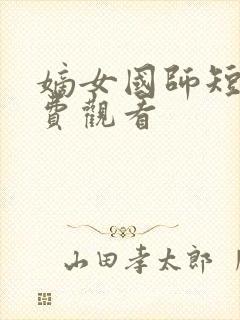 嫡女國師短
費觀看
山田孝太郎